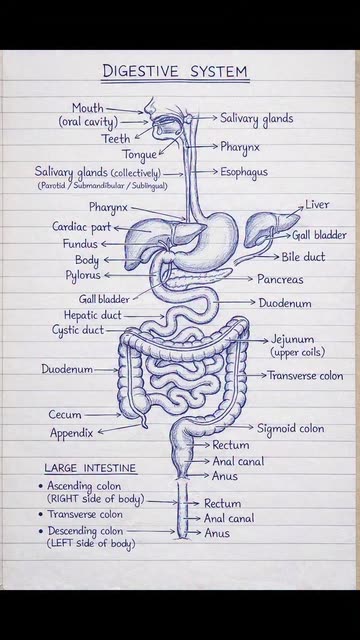 DIGESTIVE SYSTEM
Mouth
(oral cavity)
Teeth
Tongue
Salivary glands (collectively)
(Parotid / Submandibular / Sublingual)
Pharynx
Cardiac part
Fundus
Body
Pylorus
Gall bladder
Hepatic duct
Cystic duct
Duodenum
Cecum
Appendix
Salivary glands
Pharynx
Esophagus
Liver
Gall bladder
Bile duct
Pancreas
Duodenum
Jejunum
(upper coils)
Transverse colon
Sigmoid colon
Rectum
Anal canal
Anus
LARGE INTESTINE
• Ascending colon
(RIGHT side of body)
• Transverse colon
• Descending colon
(LEFT side of body)
Rectum
Anal canal
Anus